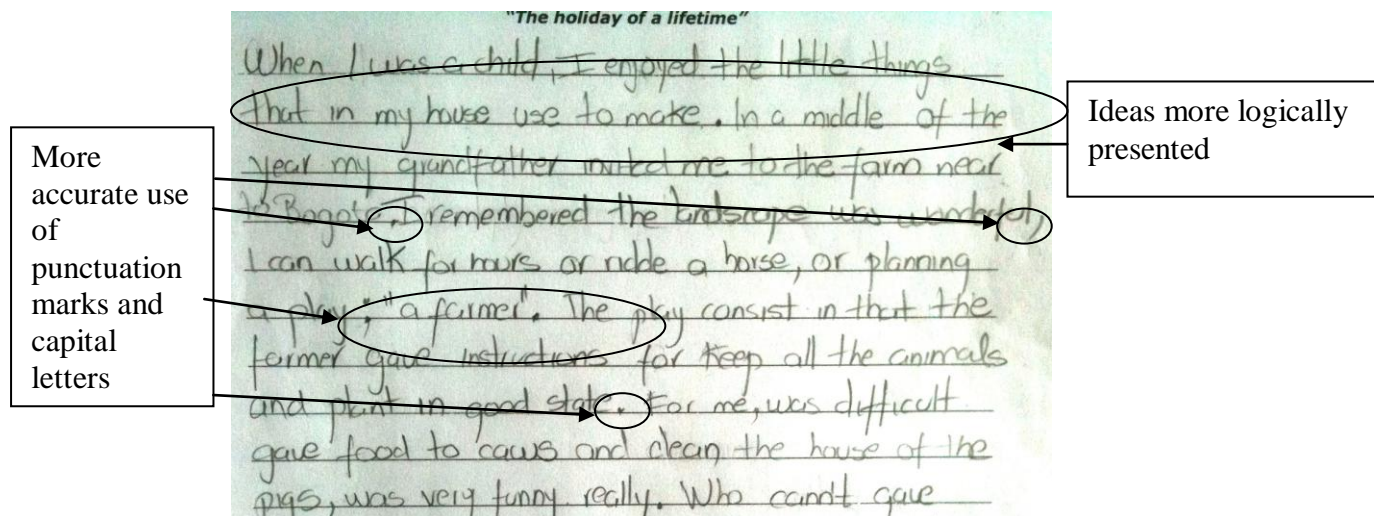 "The holiday of a lifetime"
When I was a child, I enjoyed the little things
that in my house use to make. In a middle of the
year my grandfather invited me to the farm near
to Bogotá. I remembered the landscape was wonderful,
I can walk for hours or ridde a horse, or planning
a play; "a farmer". The play consist in that the
farmer gave instructions for keep all the animals
and plant in good state. For me, was difficult
gave food to caws and clean the house of the
pigs, was very funny really. Who cand't gave
More
accurate use
of
punctuation
marks and
capital
letters
Ideas more logically
presented